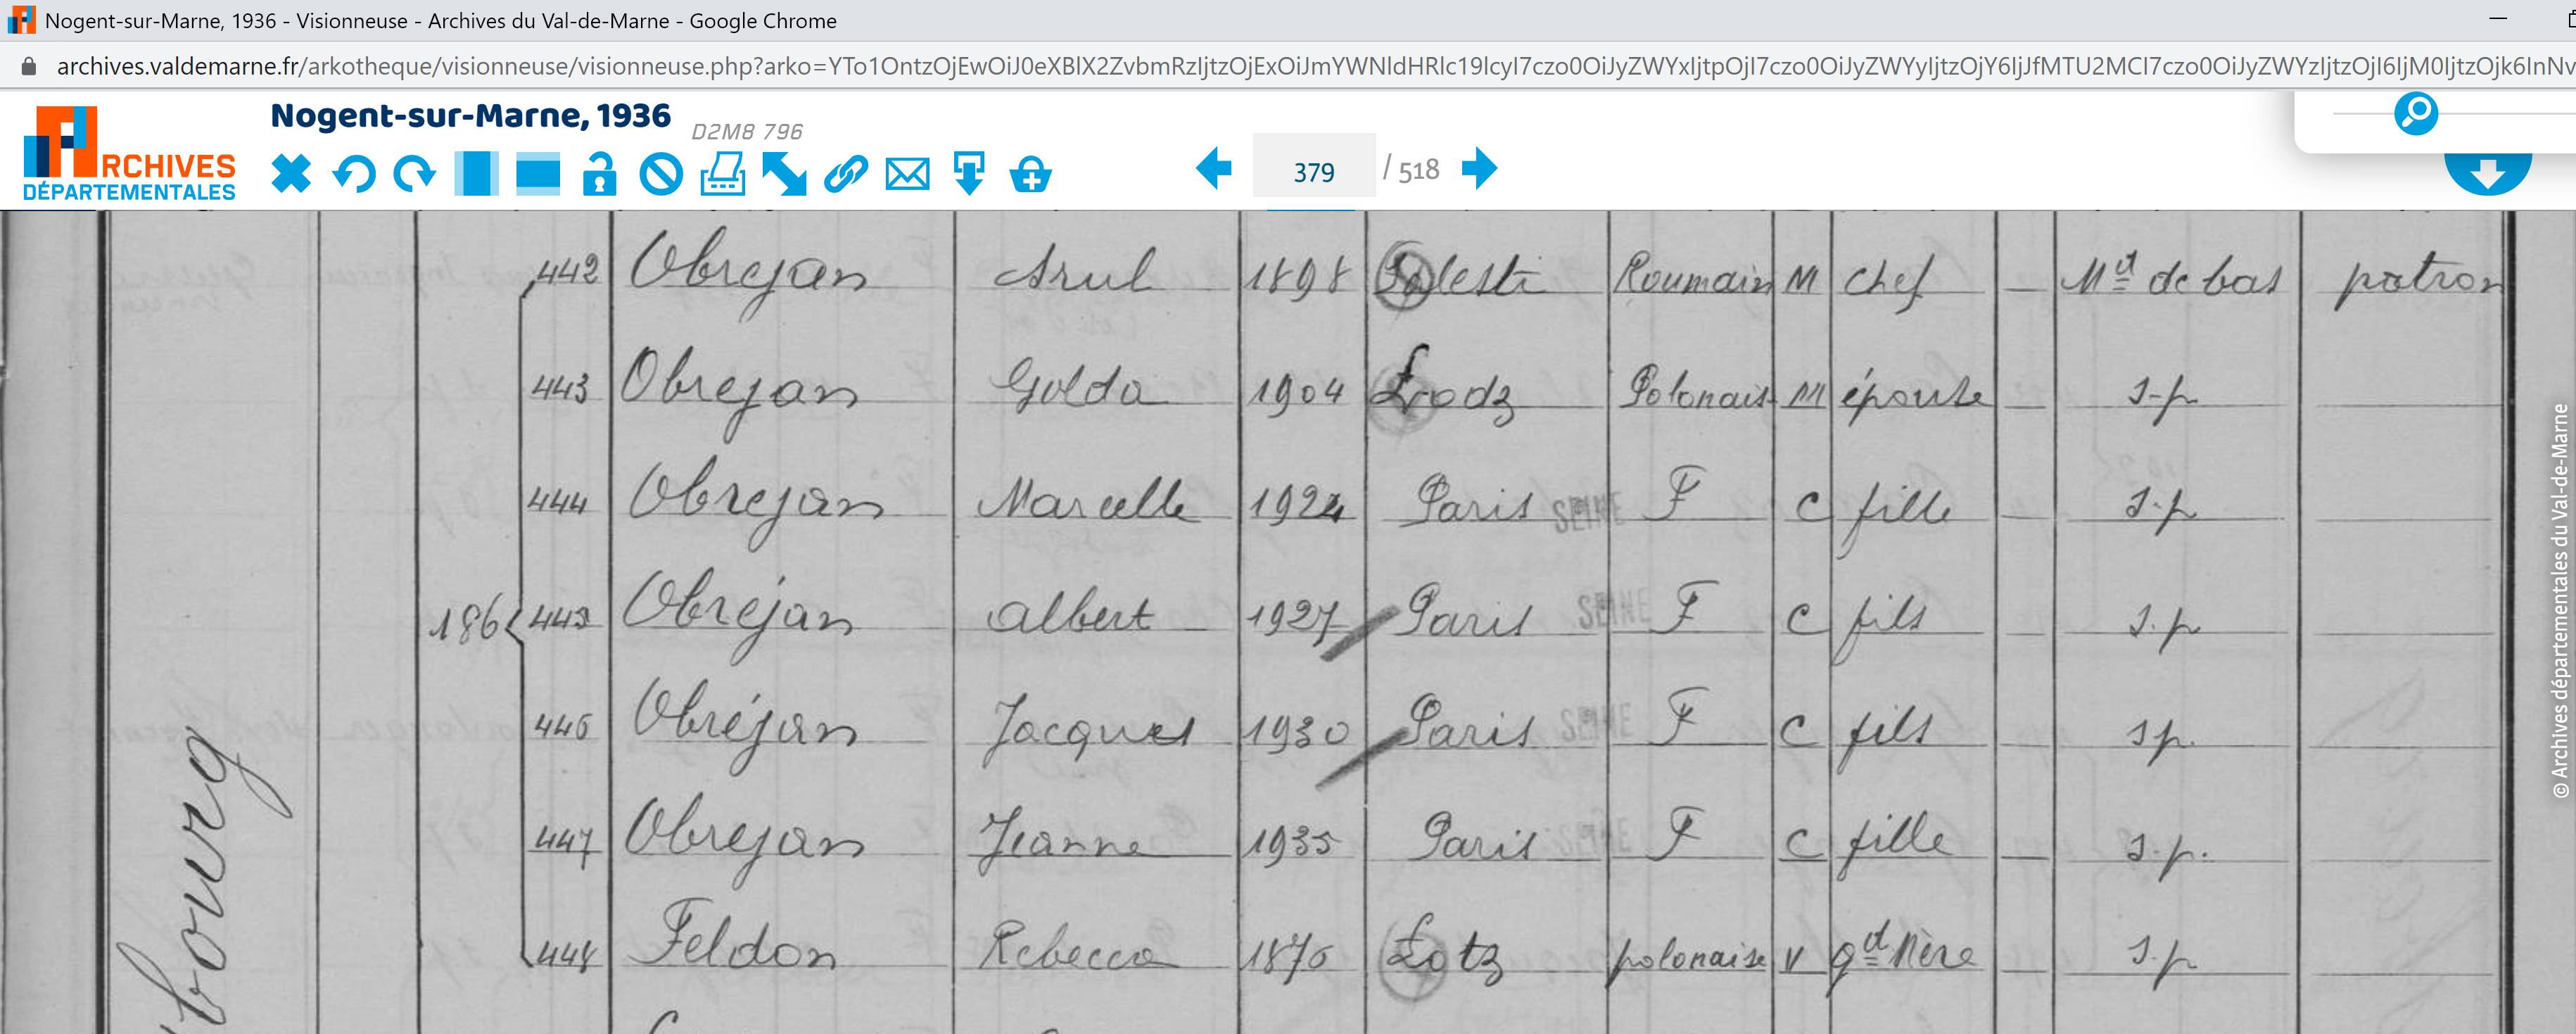 Nogent-sur-Marne, 1936 - Visionneuse - Archives du Val-de-Marne - Google Chrome
archives.valdemarne.fr/arkotheque/visionneuse/visionneuse.php?arko=
ARCHIVES
DÉPARTEMENTALES
Nogent-sur-Marne, 1936 D2M8 796
379 / 518
442 Obrejan 1898 Roumain M chef — Md de bas patron
443 Obrejan Golda 1904 Lodz Polonais M épouse — s-p
444 Obrejan Marcelle 1924 Paris SEINE F C fille — s-p
186 445 Obrejan Albert 1927 Paris SEINE F C fils — s.p
446 Obréjan Jacques 1930 Paris SEINE F C fils s p.
447 Obrejan Jeanne 1935 Paris SEINE F C fille — s-p.
448 Feldon Rebecca 1876 Lotz polonaise V gd Mère — s.p
bourg
© Archives départementales du Val-de-Marne